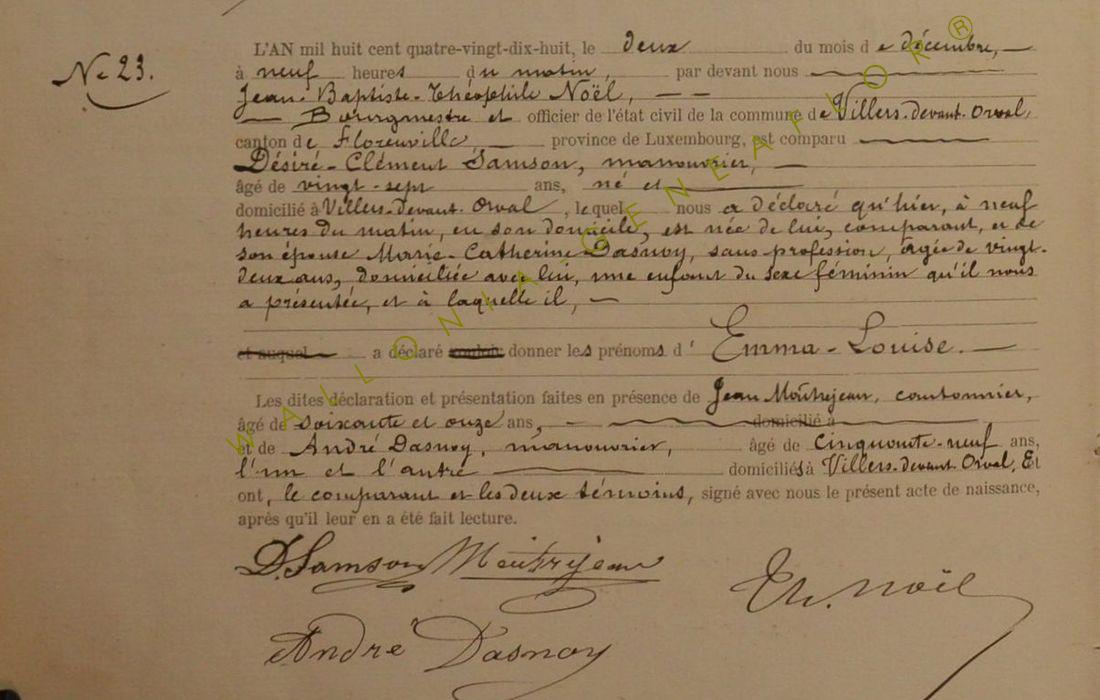 No 23.
L'AN mil huit cent quatre-vingt-dix-huit, le deux du mois de décembre, —
à neuf heures du matin, par devant nous —
Jean-Baptiste-Théophile Noël, — —
— Bourgmestre et officier de l'état civil de la commune de Villers-devant-Orval,
canton de Florenville, — province de Luxembourg, est comparu —
Désiré-Clément Samson, manouvrier, —
âgé de vingt-sept ans, né et —
domicilié à Villers-devant-Orval, lequel nous a déclaré qu'hier, à neuf
heures du matin, en son domicile, est née de lui, comparant, et de
son épouse Marie-Catherine Dasnoy, sans profession, âgée de vingt-
deux ans, domiciliée avec lui, une enfant du sexe féminin qu'il nous
a présentée, et à laquelle il, —
et auquel a déclaré vouloir donner les prénoms d' Emma-Louise. —
Les dites déclaration et présentation faites en présence de Jean Moutrejean, cantonnier,
âgé de soixante et onze ans, — domicilié à
et de André Dasnoy, manouvrier, âgé de cinquante-neuf ans,
l'un et l'autre — domiciliés à Villers-devant-Orval, Et
ont, le comparant et les deux témoins, signé avec nous le présent acte de naissance,
après qu'il leur en a été fait lecture.
D. Samson Moutrejean
Th. Noël
André Dasnoy
WALLONIA GENEAFLOR ®